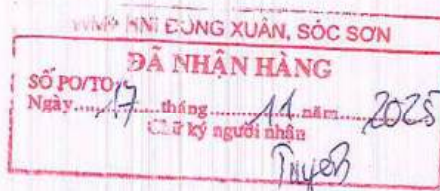 WMP HNI ĐÔNG XUÂN, SÓC SƠN
ĐÃ NHẬN HÀNG
SỐ PO/TO:
Ngày......17......tháng......11......năm......2025
Chữ ký người nhận